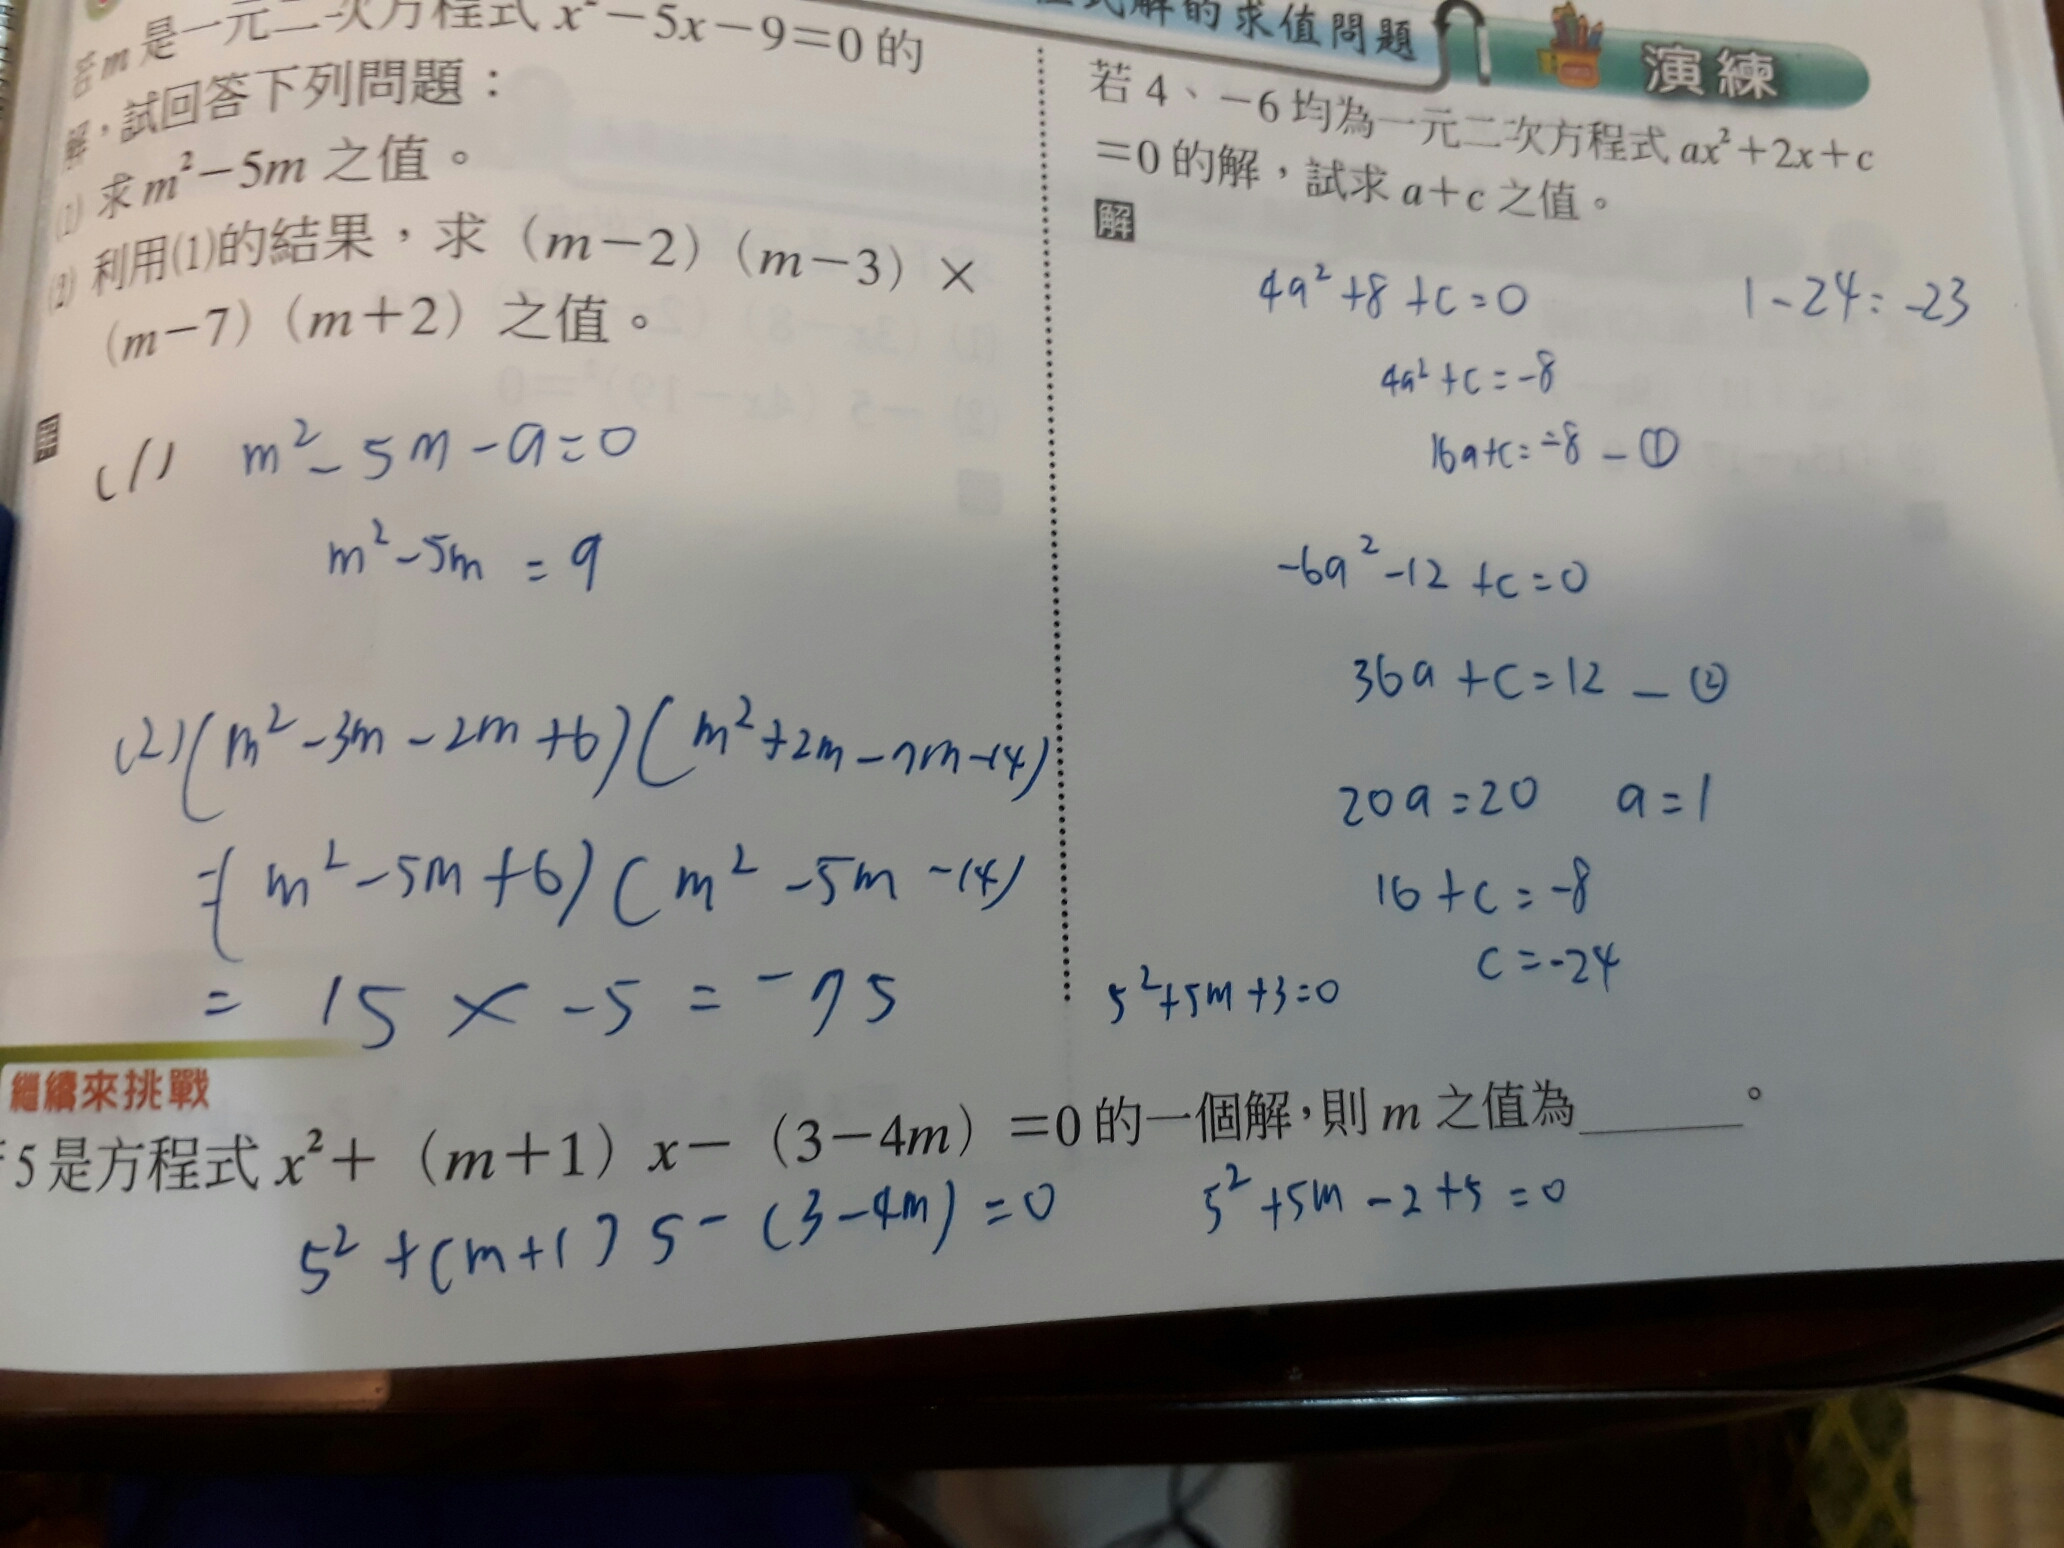 若 m 是一元二次方程式 x²－5x－9＝0 的
解，試回答下列問題：
(1) 求 m²－5m 之值。
(2) 利用(1)的結果，求（m－2）（m－3）×
（m－7）（m＋2）之值。
(1) m² - 5m - 9 = 0
m² - 5m = 9
(2) (m² - 3m - 2m + 6)(m² + 2m - 7m - 14)
= (m² - 5m + 6)(m² - 5m - 14)
= 15 × -5 = -75
式解的求值問題
演練
若 4、－6 均為一元二次方程式 ax²＋2x＋c
＝0 的解，試求 a＋c 之值。
解
4a² + 8 + c = 0
1 - 24 = -23
4a² + c = -8
16a + c = -8 — ①
-6a² - 12 + c = 0
36a + c = 12 — ②
20a = 20 a = 1
16 + c = -8
c = -24
5² + 5m + 3 = 0
繼續來挑戰
5 是方程式 x²＋（m＋1）x－（3－4m）＝0 的一個解，則 m 之值為＿＿＿＿。
5² + (m + 1) 5 - (3 - 4m) = 0
5² + 5m - 2 + 5 = 0